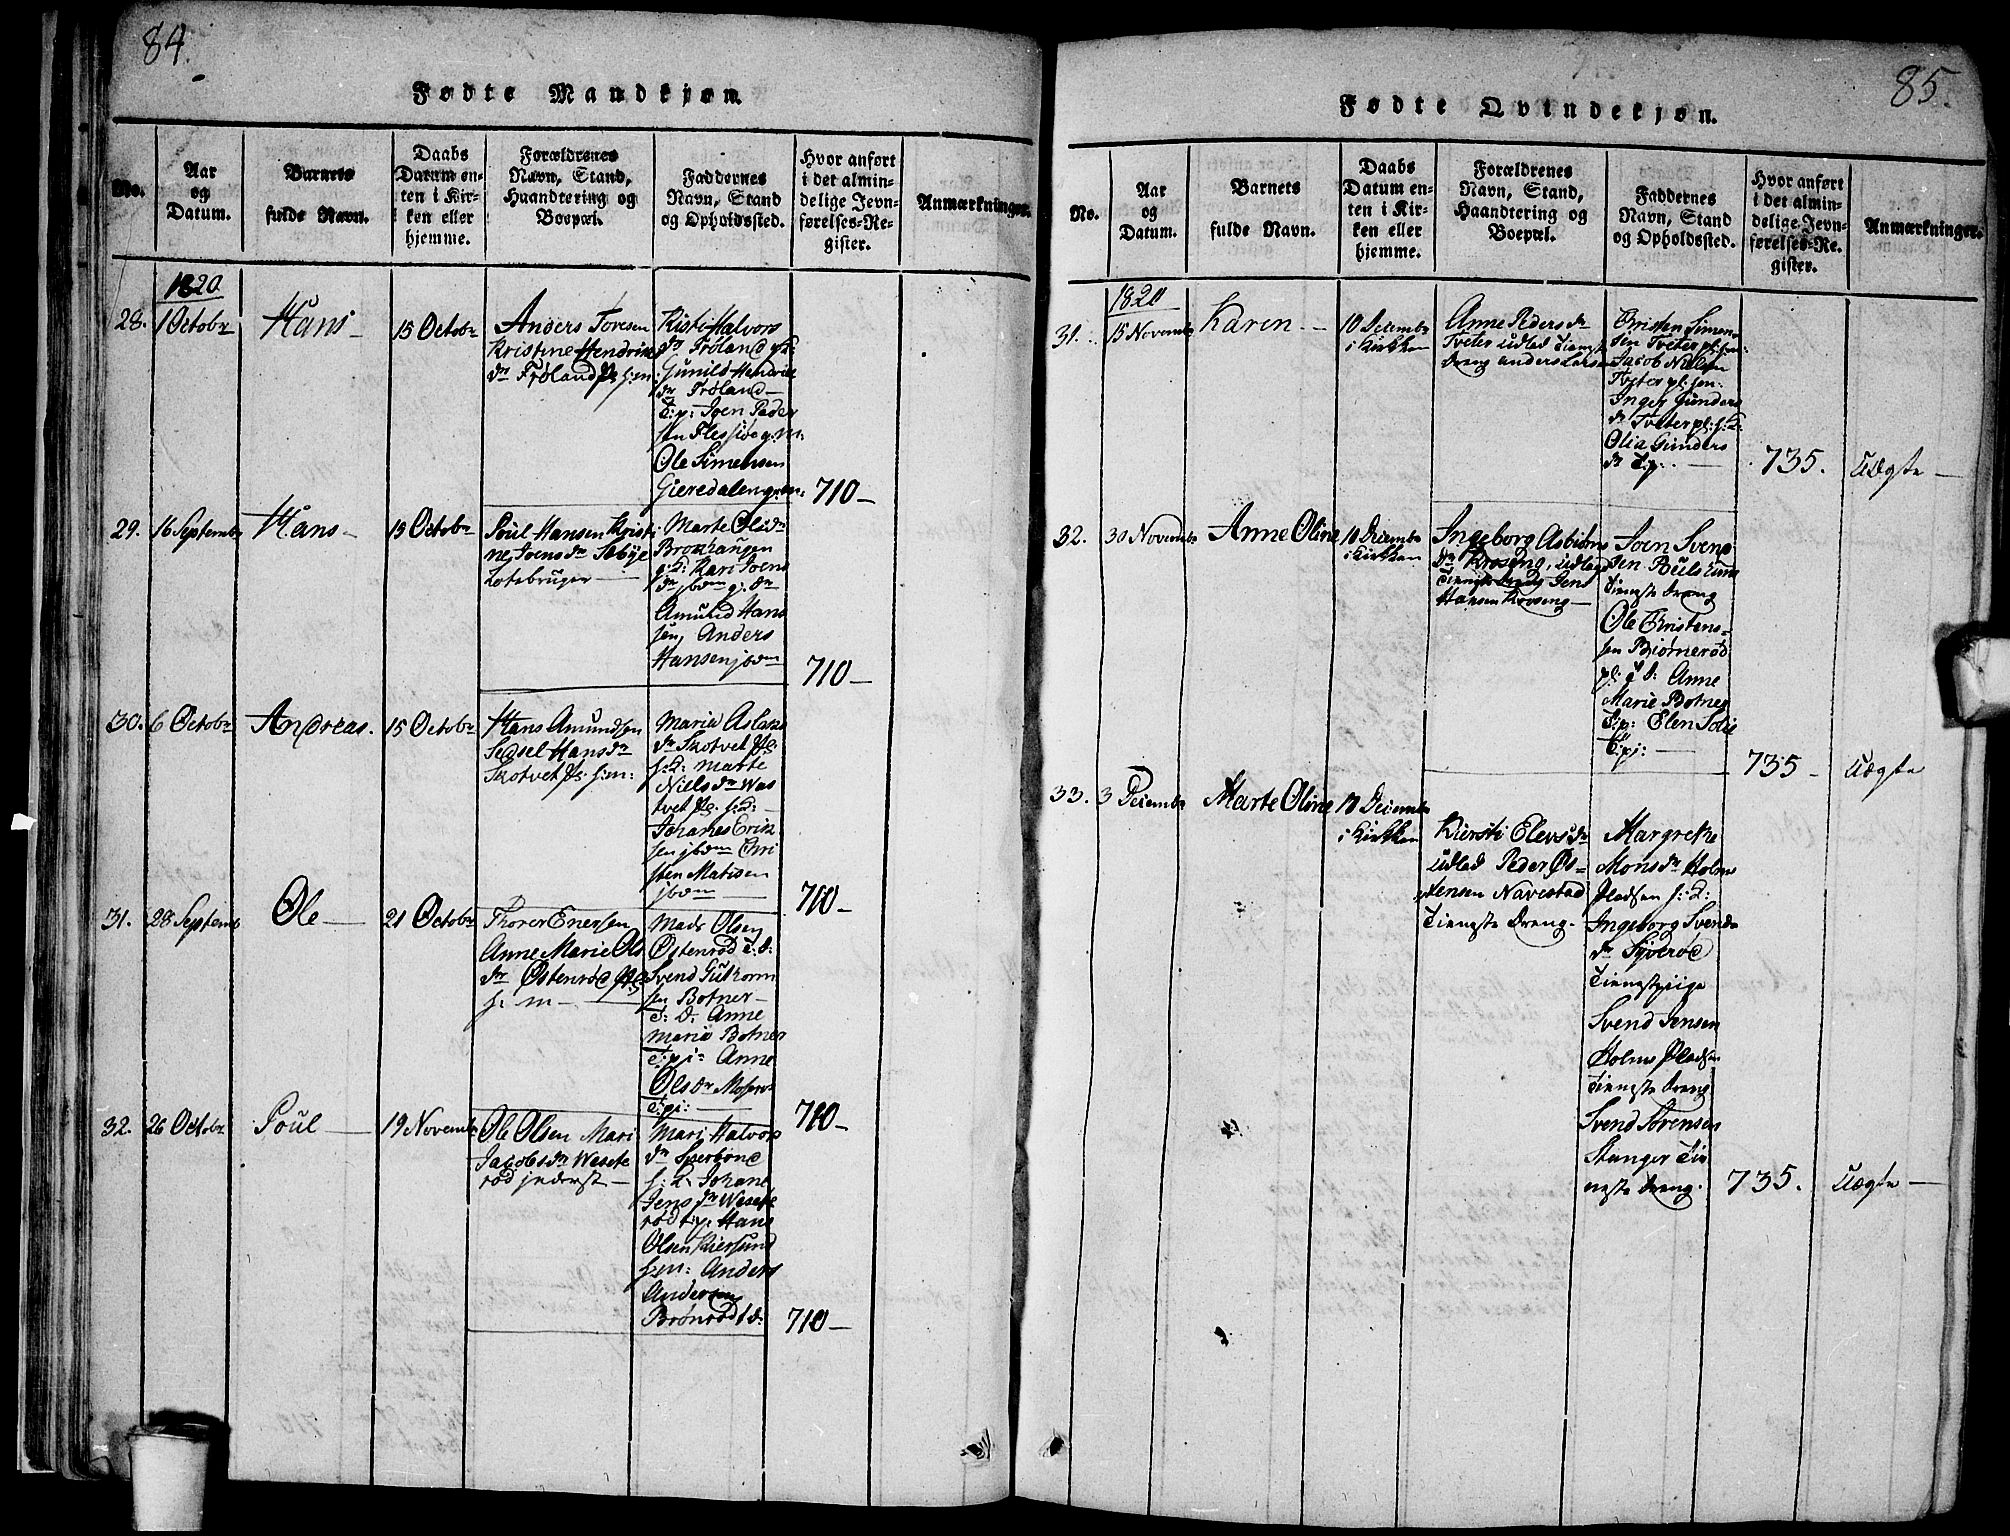 84.
Fødte Mandkjøn.
No.
Aar
og
Datum.
Barnets
fulde Navn.
Daabs
Datum en-
ten i Kir-
ken eller
hjemme.
Forældrenes
Navn, Stand,
Haandtering og
Boepæl.
Faddernes
Navn, Stand
og Opholdssted.
Hvor anført
i det almin-
delige Jevn-
førelses-Re-
gister.
Anmærkninger.
1820
28.
1 Octobr
Hans
15 Octobr
Anders Toresen
Kristine Hendriks
dr Frøland
Kisti Halvors
dr Frøland
Gunild Hendriks
dr Frøland
T:p: Joen Peder
sen Flessiøe g.m:
Ole Simensen
Gieredalen g:m:
710
29.
16 Septembr
Hans
15 Octobr
Poul Hansen Kristi
ne Joensdr Sæbye
Lotsbruger
Marte Olsdr
Brokhaugen
g:d: Kari Joens
dr ibdm g: dr
Amund Hans
sen, Anders
Hansen ibdm
710
30.
6 Octobr
Andreas.
15 Octobr
Hans Amundsen
Sidsel Hansdr
Skotvet Ps: h:m:
Maria Aslaks
dr Skotvet
h:d: Marte
Nielsdr Was
tvet
Johanes Erik
sen ibdm Chri
sten Matisen
ibdm
710
31.
28 Septemb
Ole
21 Octobr
Thorer Enersen
Anne Marie Ols
dr Østenrød
h: m
Mads Olsen
Østenrød T:D:
Svend Gutkorm
sen Botner
T: D: Anne
Maria Botner
T:pi: Anne
Olsdr Mosero
T:pi:
710
32.
26 Octobr
Poul
19 Novembr
Ole Olsen Mari
Jacobsdr Wesete
rød inderst
Mari Halvors
dr Sperbond
h: d: Johane
Jens dr Wesete
rød t:p: Hans
Olsen Kiersund
h:m: Anders
Andersen
Brønrød t d:
710
85.
Fødte Qvindekjøn.
No.
Aar
og
Datum.
Barnets
fulde Navn.
Daabs
Datum en-
ten i Kir-
ken eller
hjemme.
Forældrenes
Navn, Stand,
Haandtering og
Boepæl.
Faddernes
Navn, Stand
og Opholdssted.
Hvor anført
i det almin-
delige Jevn-
førelses-Re-
gister.
Anmærkninger.
1820
31.
15 Novembr
Karen
10 Decembr
i Kirkken
Anne Pedersdr
Tveter udlad Tienste
dreng Anders Larsen
Christen Simen
sen Tveter pl: h:m:
Jacob Nielsen
Tveter pl: sen:
Inger Gunders
dr Tveter pl: h: d:
Olia Gunders
dr T:p:
735.
Uægte
32.
30 Novembr
Anne Oline
10 Decembr
i Kirkken
Ingeborg Asbiørns
dr Kroseng, udlagd
Tienste dreng Jens
Hansen Kroseng
Joen Svend
sen Bulshuus
Tienste dreng
Ole Christens
sen Biørnerød
pl: T D: Anne
Marie Botner
T:p: Elen Sofie
T:pi:
735
Uægte
33.
3 Decembr
Marte Oline
17 Decembr
i Kirkken
Kiersti Elevsdr
udlad Peder Øs-
tensen Navestad
Tienste dreng.
Margrete
Monsdr Holms
Pladsen h: d:
Ingeborg Svends
dr Syverød
Tienstepiige
Svend Jensen
Holms Pladsen
Tienste dreng
Svend Sørensen
Stanger Tie
neste dreng.
735.
Uægte